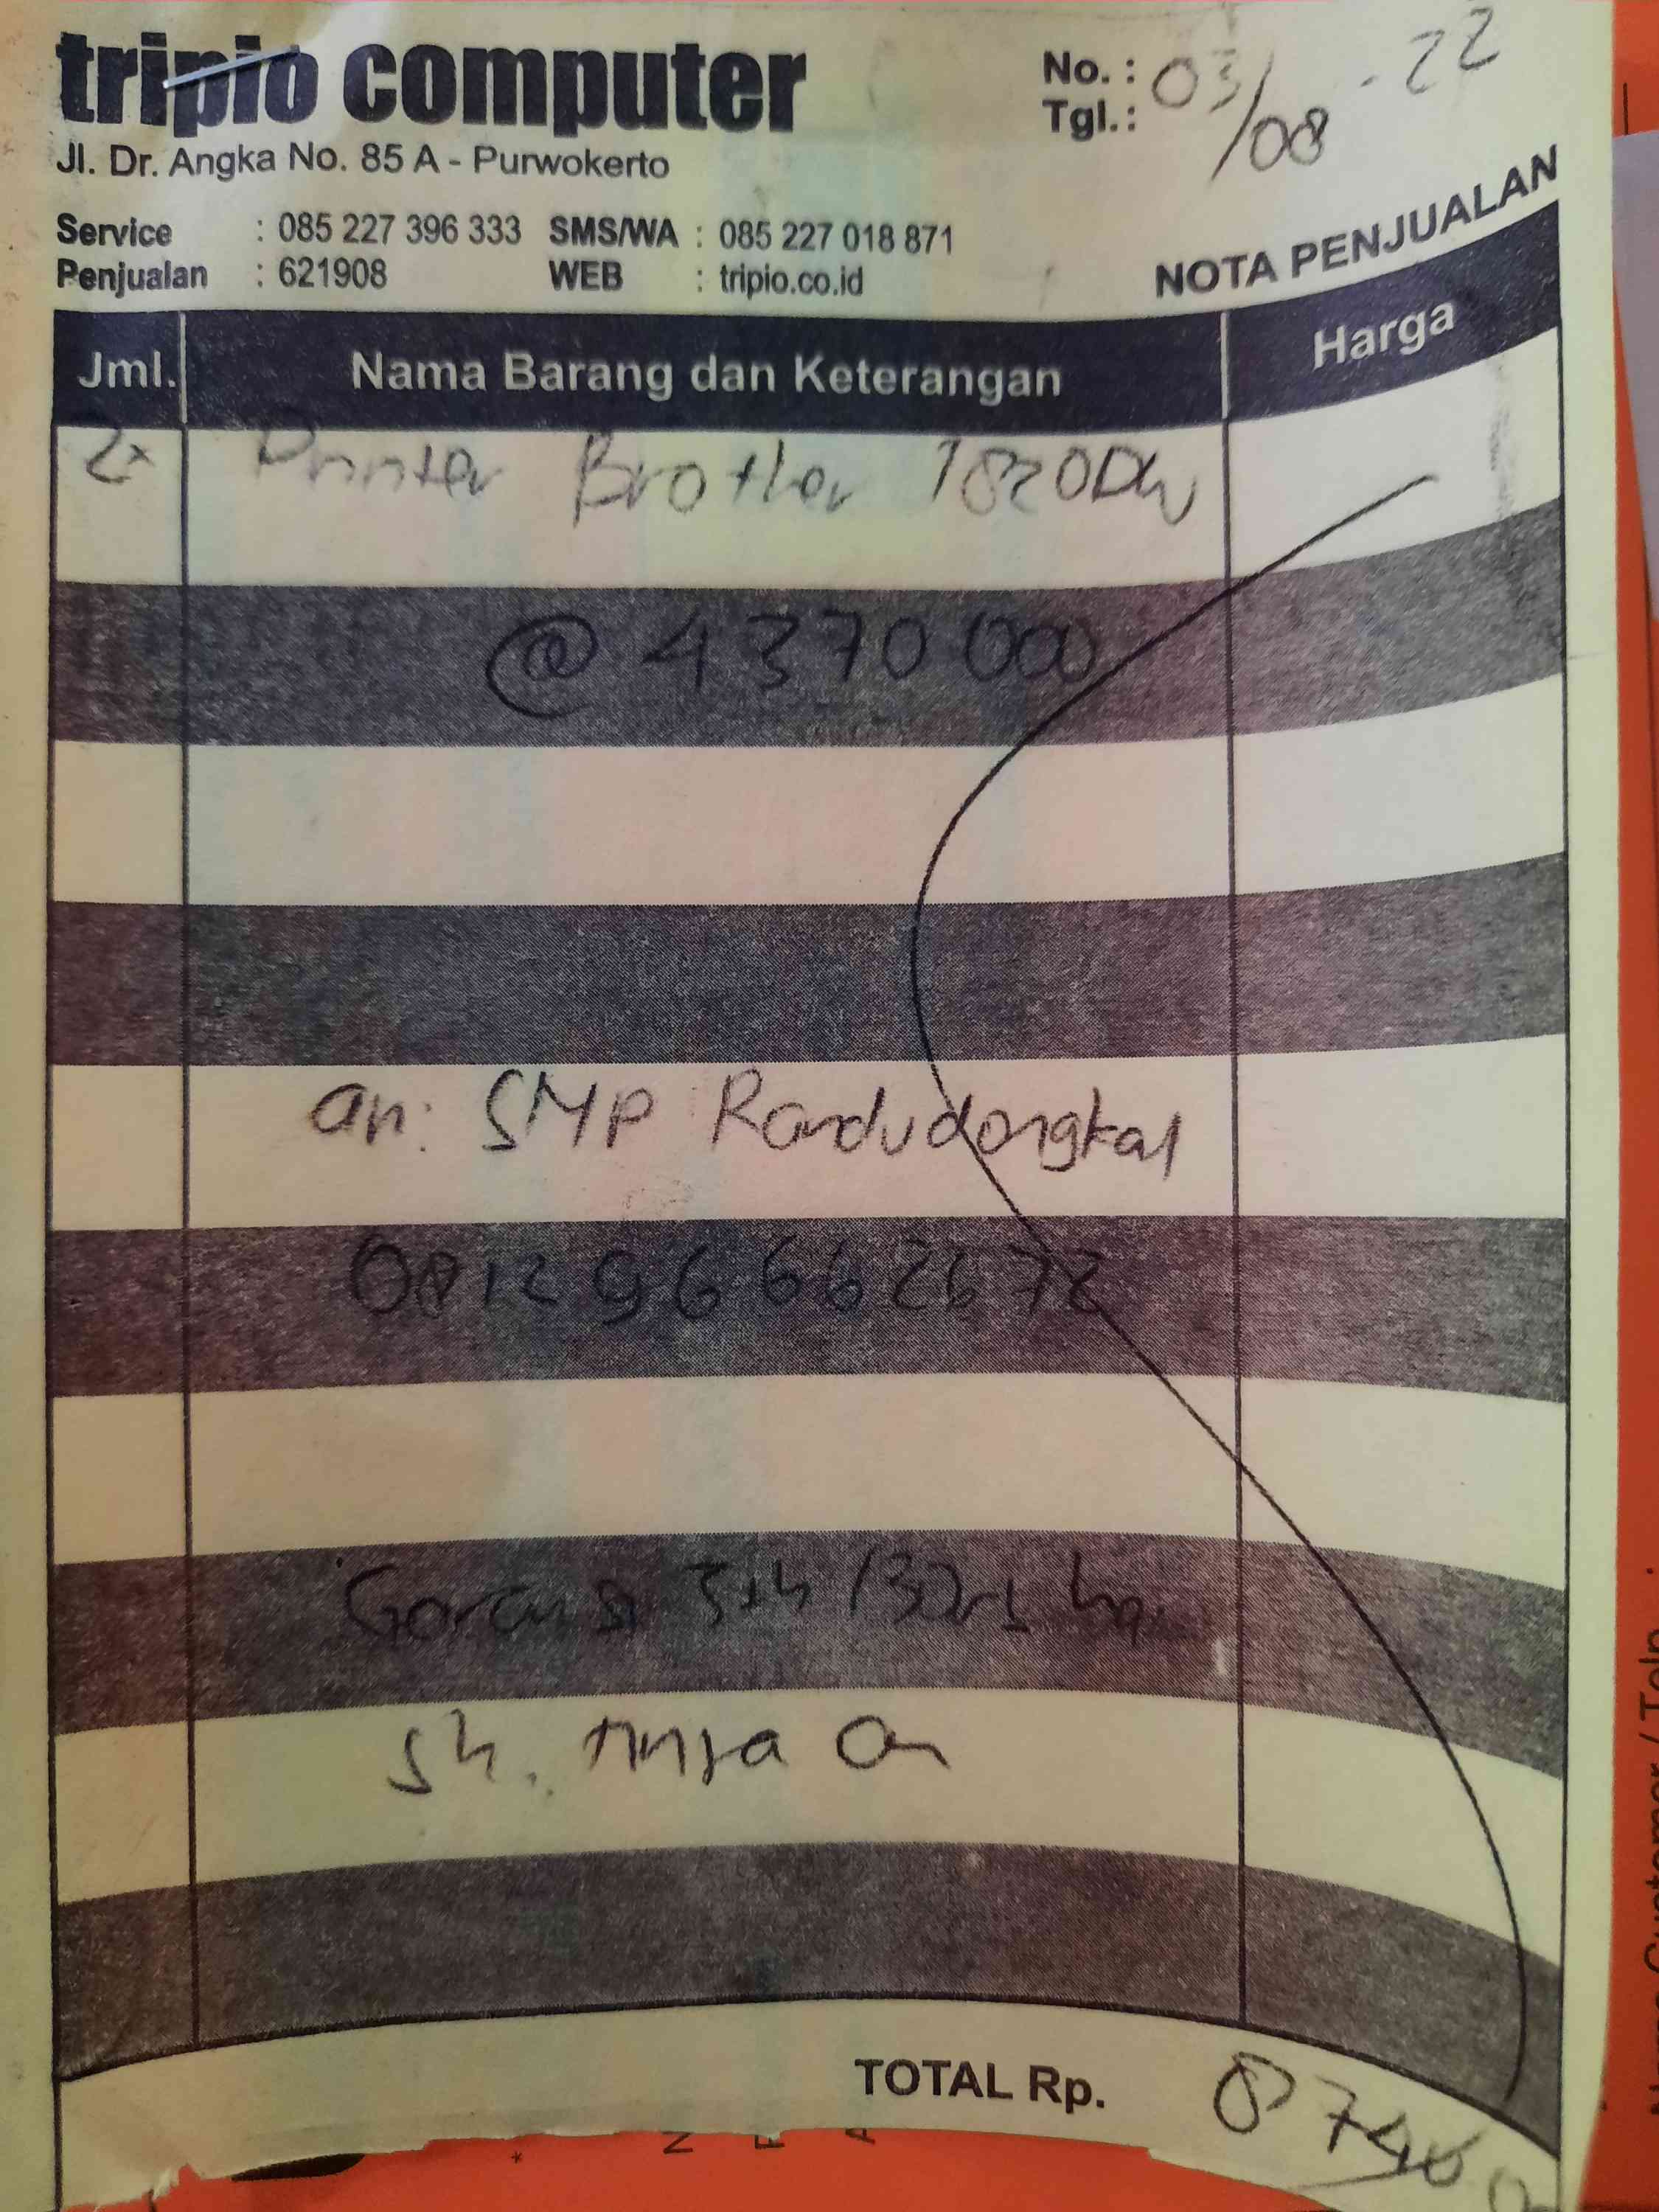 tripio computer
No. :
Jl. Dr. Angka No. 85 A - Purwokerto
Tgl. : 03/08-22
Service : 085 227 396 333 SMS/WA : 085 227 018 871
Penjualan : 621908 WEB : tripio.co.id
NOTA PENJUALAN
Jml. Nama Barang dan Keterangan Harga
2x Printer Brother T820DW
@ 4370 000
an: SMP Randudongkal
081296662672
Garansi 3th /
TOTAL Rp. 8740
Nama Customer / Telp